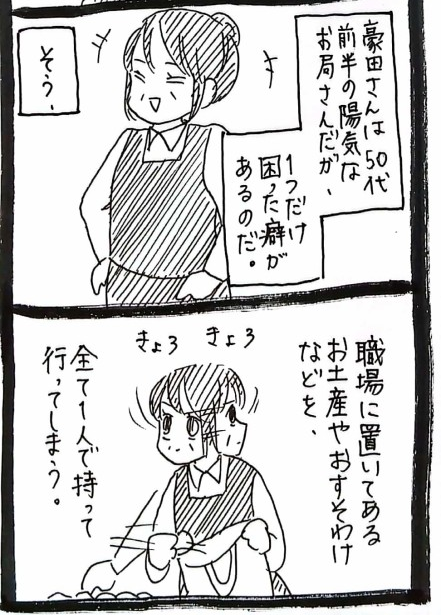 豪田さんは50代
前半の陽気な
お局さんだが、
1つだけ
困った癖が
あるのだ。
そう、
職場に置いてある
お土産やおすそわけ
などを、
きょろ
きょろ
全て1人で持って
行ってしまう。